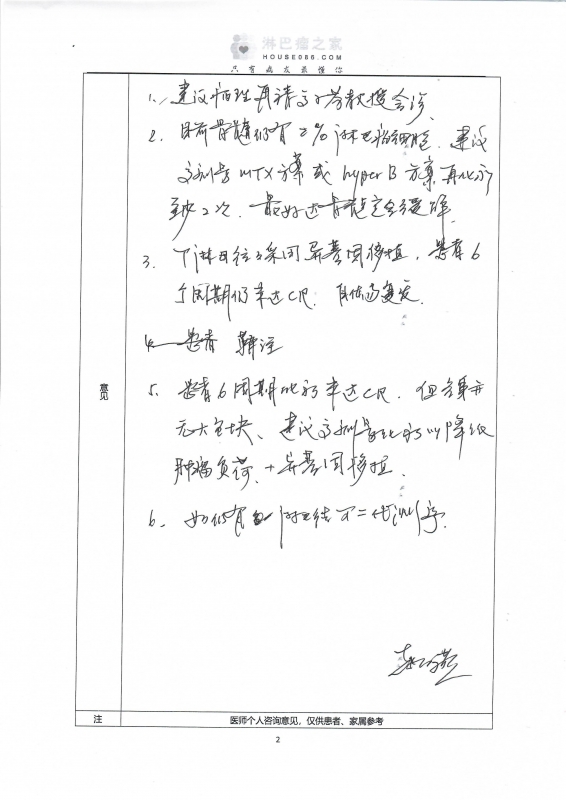 淋巴瘤之家
HOUSE086.COM
只有病友最懂你
1、建议病理再请 教授会诊
2、目前骨髓仍有2%淋巴瘤细胞,建议
大剂量MTX方案或hyper B方案再化疗
至少2次,最好达骨髓完全缓解
3、T淋母往往采用异基因移植,患者6
个周期仍未达CR,自体易复发
4、患者
5、患者6周期化疗未达CR,但全身并
无大包块、建议大剂量化疗 降低
肿瘤负荷,+异基因移植
6、如仍有 淋巴结可二代测序
意见
注 医师个人咨询意见,仅供患者、家属参考
2